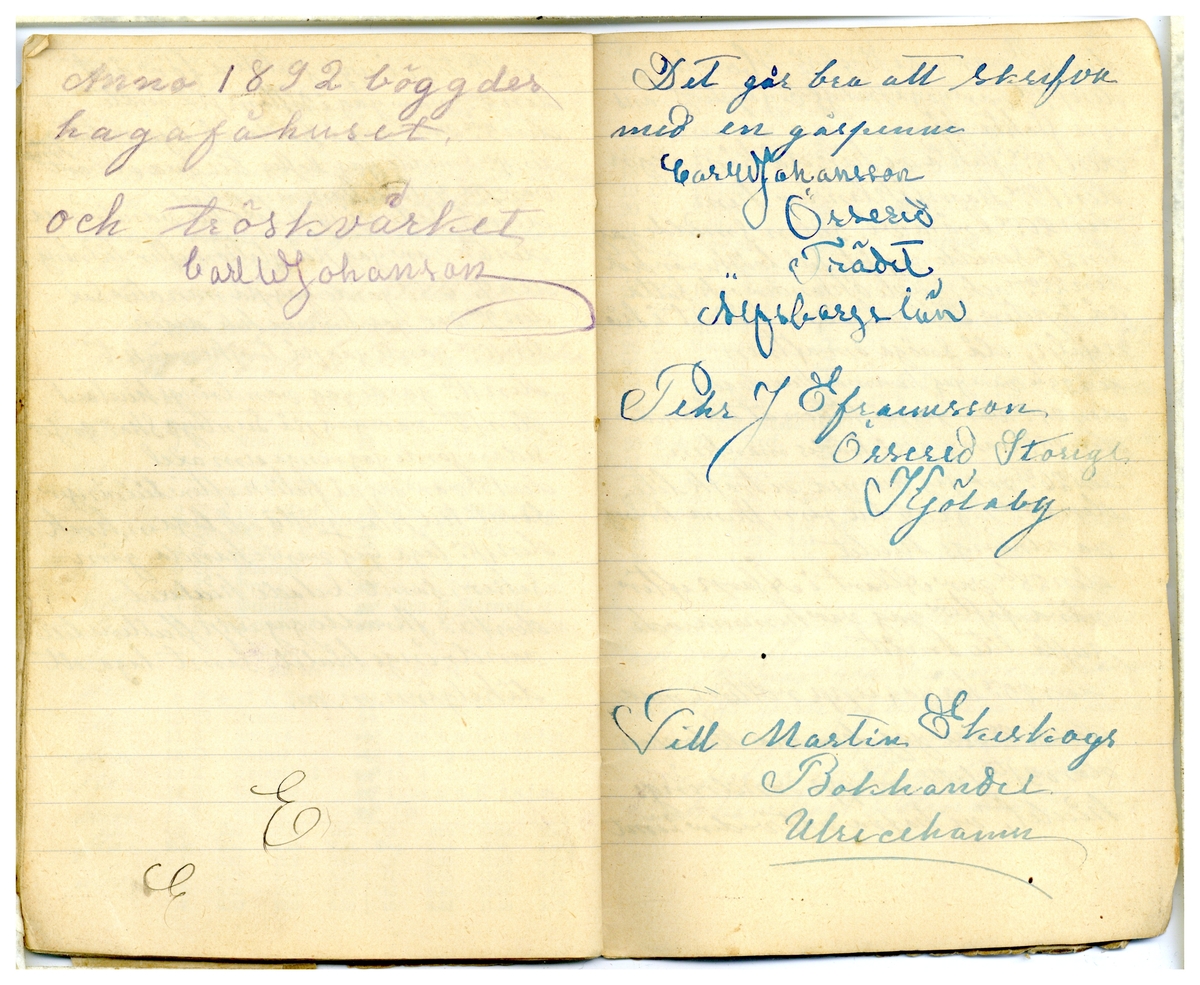 Anno 1892 böggdes
hagafähuset.
och tröskvärket
Carl W Johanson
E
E
Det går bra att skrifva
med en gåspenna
Carl W Johansson
Örserid
Trädet
Älfsborgs län
Pehr J Efraimsson
Örsered Storegl.
Kjölaby
Till Martin Ekeskogs
Bokhandel
Ulricehamn